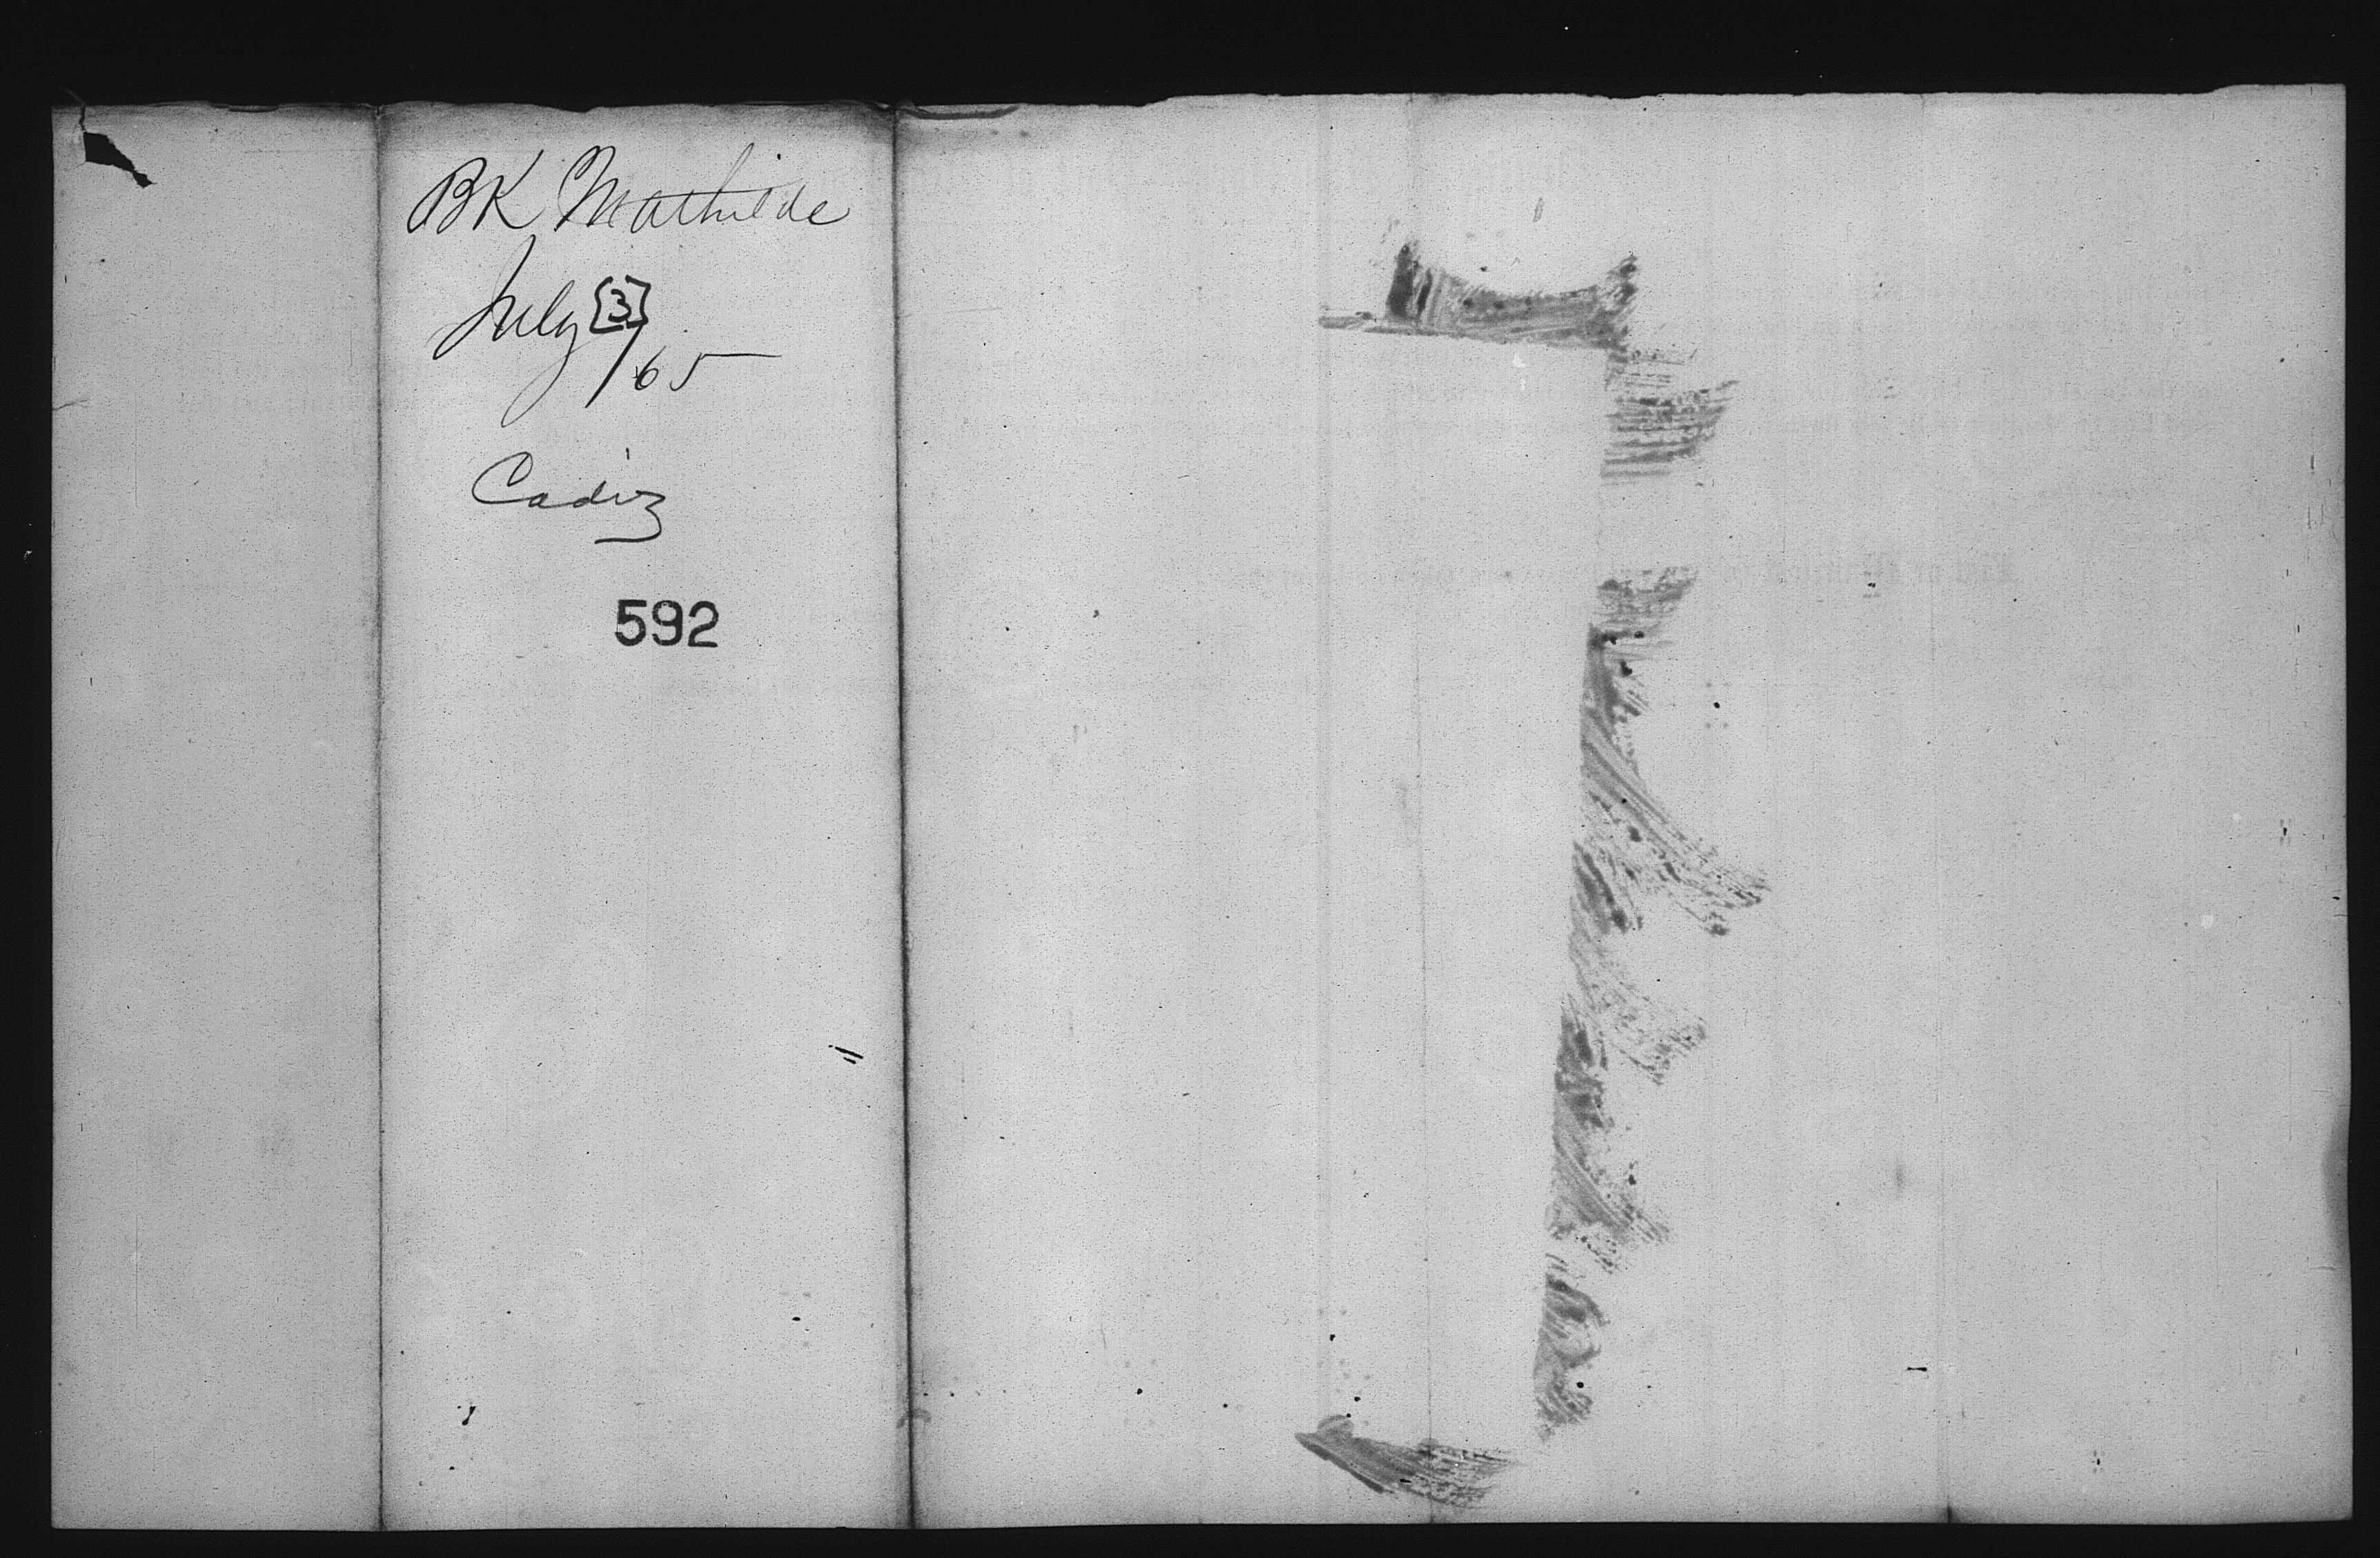 BK Mathilde
July [3]/65
Cadiz
592